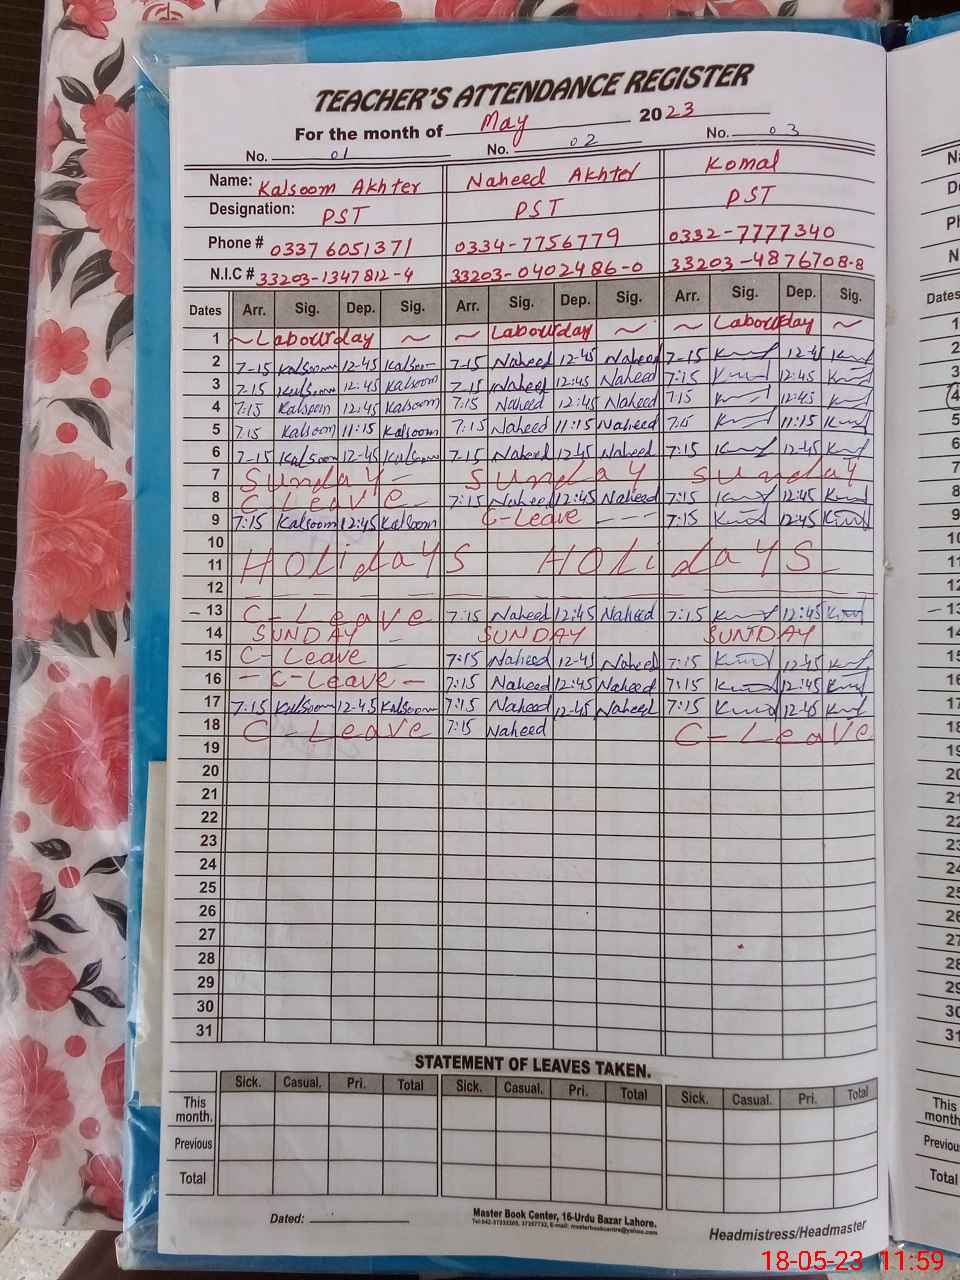 TEACHER'S ATTENDANCE REGISTER
For the month of May 2023
No. 01 No. 02 No. 03
Name: Kalsoom Akhter Naheed Akhter Komal
Designation: PST PST PST
Phone # 03376051371 0334-7756779 0332-7777340
N.I.C # 33203-1347812-4 33203-0402486-0 33203-4876708-8
Dates Arr. Sig. Dep. Sig. Arr. Sig. Dep. Sig. Arr. Sig. Dep. Sig.
1 ~ Labourday ~ ~ Labourday ~ ~ Labourday ~
2 7-15 Kalsoom 12-45 Kalsoom 7-15 Naheed 12-45 Naheed 7-15 12-45
3 7-15 Kalsoom 12:45 Kalsoom 7-15 Naheed 12:45 Naheed 7:15 12:45
4 7:15 Kalsoom 12:45 Kalsoom 7:15 Naheed 12:45 Naheed 7:15 12:45
5 7:15 Kalsoom 11:15 Kalsoom 7:15 Naheed 11:15 Naheed 11:15
6 7-15 Kalsoom 12-45 Kalsoom 7-15 Naheed 12-45 Naheed 7:15 12-45
7 Sunday - Sunday Sunday
8 C Leave - 7:15 Naheed 12:45 Naheed 7:15 12:45
9 7:15 Kalsoom 12:45 Kalsoom C-Leave - - - 7:15 12:45
10
11 Holidays Holidays
12
- 13 C-Leave 7:15 Naheed 12:45 Naheed 7:15 12:45
14 SUNDAY - SUNDAY SUNDAY
15 C-Leave - 7:15 Naheed 12-45 Naheed 7:15 12-45
16 - C-Leave - 7:15 Naheed 12:45 Naheed 7:15 12:45
17 7:15 Kalsoom 12-45 Kalsoom 7:15 Naheed 12-45 Naheed 7:15 12-45
18 C-Leave 7:15 Naheed C-Leave
19
20
21
22
23
24
25
26
27
28
29
30
31
STATEMENT OF LEAVES TAKEN.
Sick. Casual. Pri. Total Sick. Casual. Pri. Total Sick. Casual. Pri. Total
This month.
Previous
Total
Dated:
Master Book Center, 16-Urdu Bazar Lahore.
Headmistress/Headmaster
18-05-23 11:59